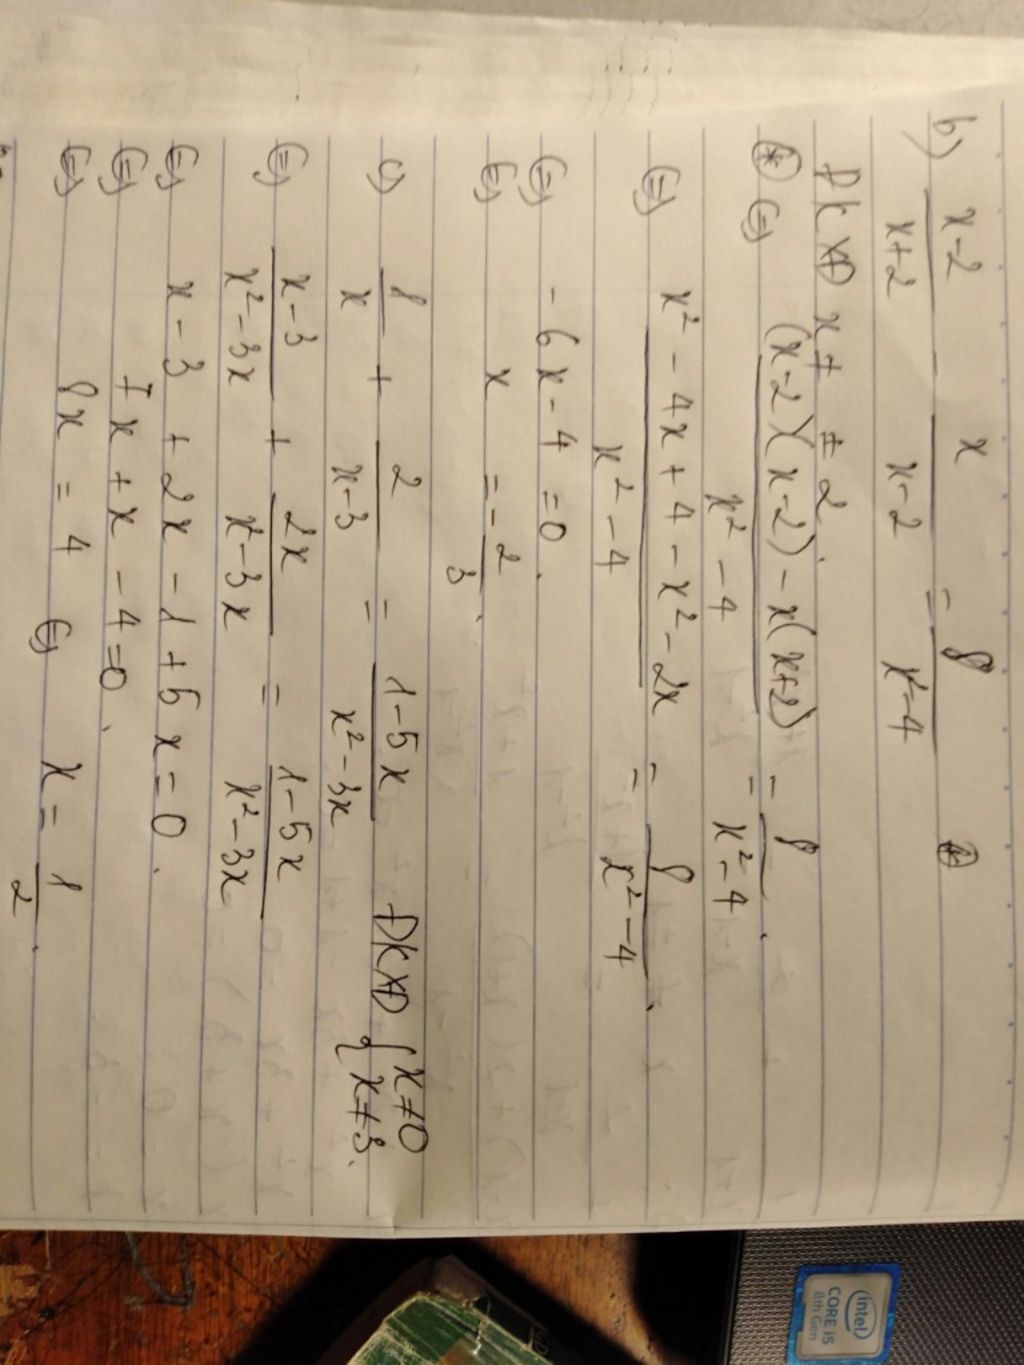 b) x-2/x+2 - x/x-2 = 8/x²-4 (*)
ĐKXĐ x ≠ ± 2.
(*) (=) (x-2)(x-2) - x(x+2)/x²-4 = 8/x²-4.
(=) x² - 4x + 4 - x² - 2x/x²-4 = 8/x²-4.
(=) - 6x - 4 = 0.
(=) x = - 2/3.
c) 1/x + 2/x-3 = 1-5x/x²-3x ĐKXĐ { x≠0 x≠3.
(=) x-3/x²-3x + 2x/x²-3x = 1-5x/x²-3x
(=) x - 3 + 2x - 1 + 5x = 0.
(=) 7x + x - 4 = 0.
(=) 8x = 4 (=) x = 1/2.
intel
CORE i5
8th Gen